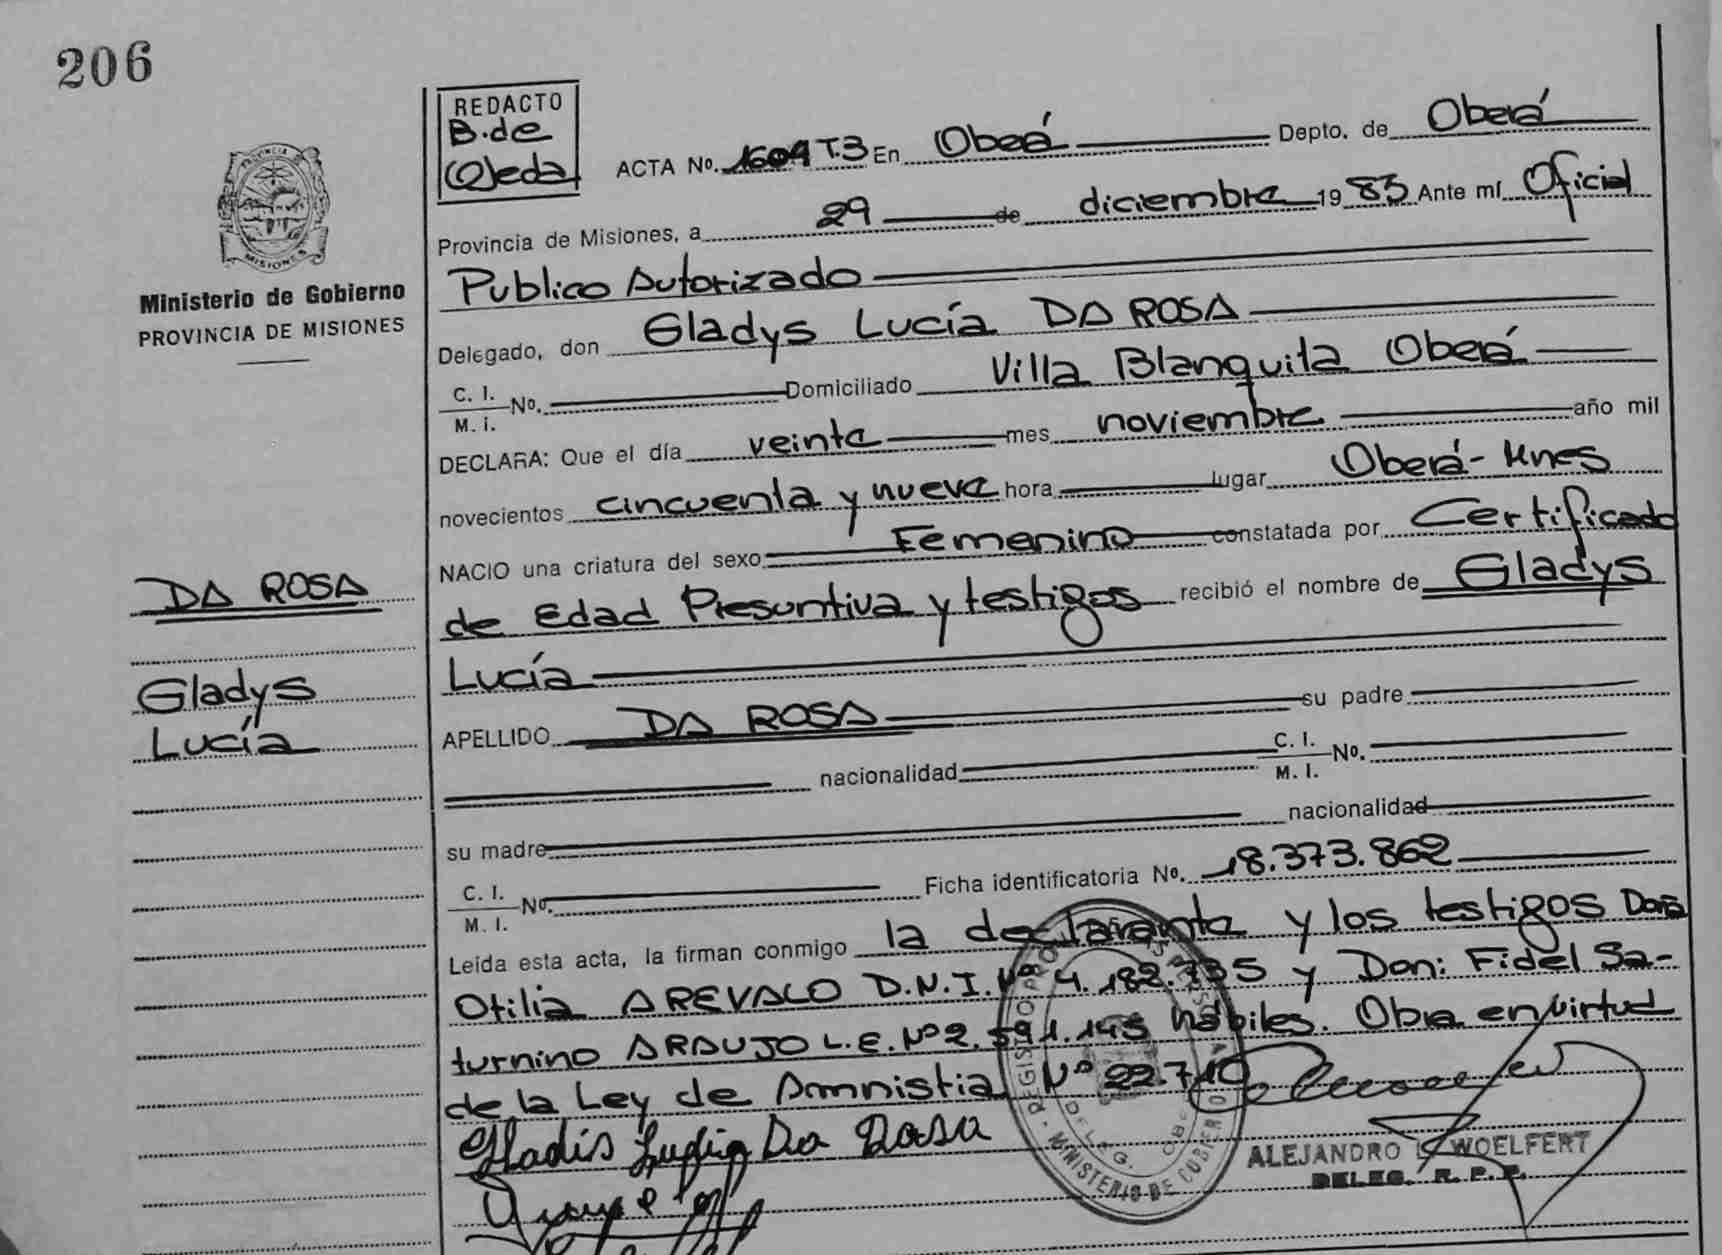 206
REDACTO
B. de
Ojeda
ACTA No. 1609 T.3 En Oberá Depto. de Oberá
Provincia de Misiones, a 29 de diciembre 1983 Ante mí Oficial
Publico Autorizado
Delegado, don Gladys Lucía DA ROSA
C. I.
M. i. No. Domiciliado Villa Blanquita Oberá
DECLARA: Que el día veinte mes noviembre año mil
novecientos cincuenta y nueve hora lugar Oberá - Mnes
NACIO una criatura del sexo Femenino constatada por Certificado
de Edad Presuntiva y testigos recibió el nombre de Gladys
Lucía
APELLIDO DA ROSA su padre
nacionalidad C. I.
M. I. No.
su madre nacionalidad
C. I.
M. I. No. Ficha identificatoria No. 18.373.862
Leída esta acta, la firman conmigo la declarante y los testigos Doña
Otilia AREVALO D.N.I. Nº 4.182.735 y Don: Fidel Sa-
turnino ARAUJO L.E. Nº 2.591.145 hábiles. Obra en virtud
de la Ley de Amnistia Nº 22.710
Gladis Lucia Da Rosa
ALEJANDRO WOELFERT
DELEG. R. P. P.
PROVINCIA DE
MISIONES
Ministerio de Gobierno
PROVINCIA DE MISIONES
DA ROSA
Gladys
Lucía
REGISTRO
DELEG.
MINISTERIO DE GOBIERNO